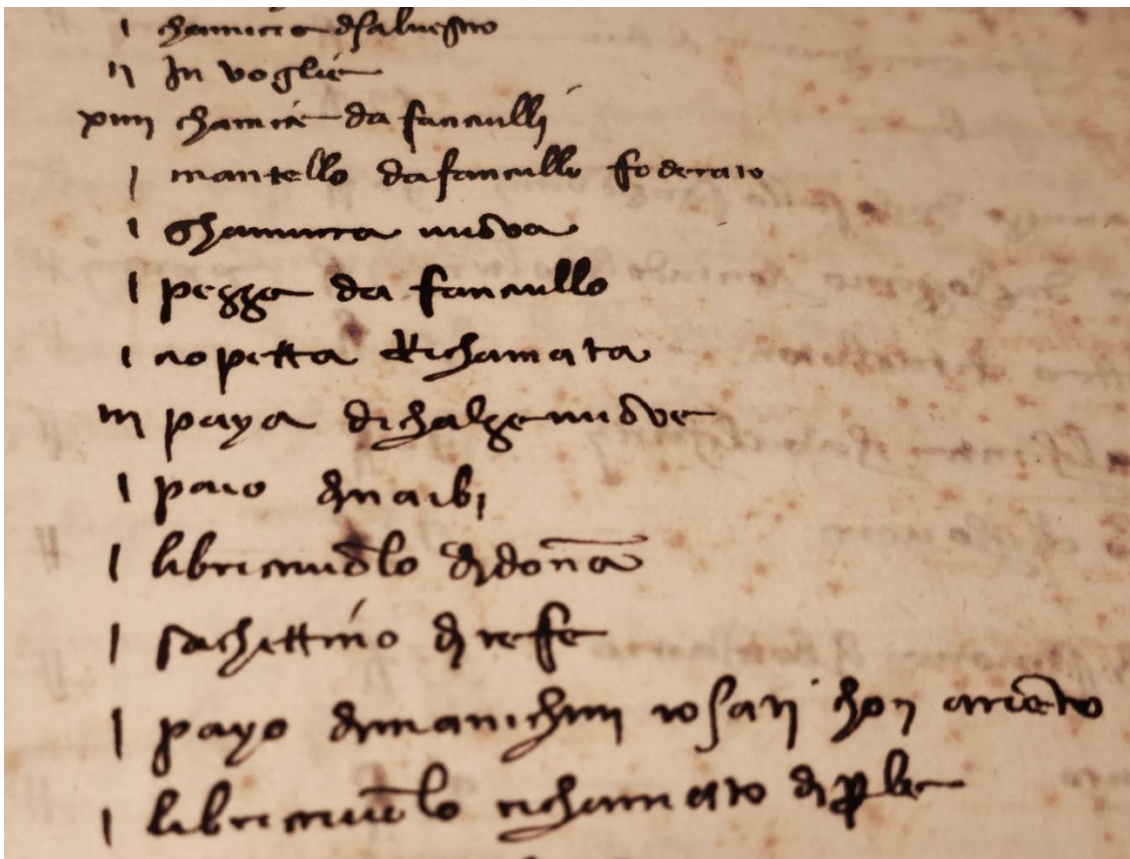 1 chamicia di salvestro
ii Invoglie
xiiii chamicie da fanciulli
1 mantello da fanciullo foderato
1 ghamurra nuova
1 pezza da fanciullo
1 ropetta richamata
iii paya di chalze nuove
1 paio di naibi
1 libricciuolo di donna
1 sachettino di refe
1 payo di manichini rosati chon ariento
1 libricciuolo richamato di perle